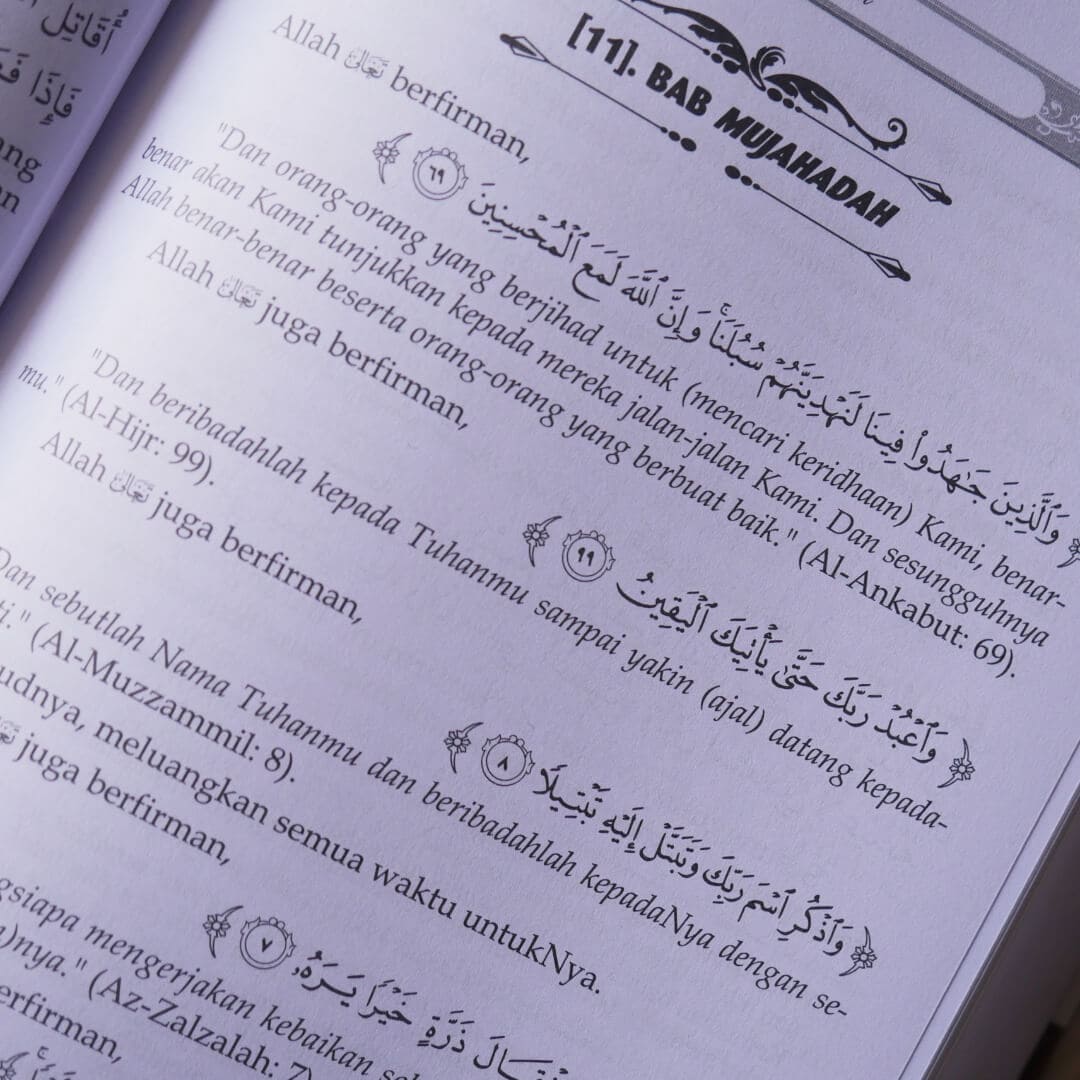 أُقَاتِلَ
فَإِذَا
ang
[11]. BAB MUJAHADAH
Allah تعالى berfirman,
﴿ وَٱلَّذِينَ جَـٰهَدُوا۟ فِينَا لَنَهْدِيَنَّهُمْ سُبُلَنَا ۚ وَإِنَّ ٱللَّهَ لَمَعَ ٱلْمُحْسِنِينَ ٦٩ ﴾
"Dan orang-orang yang berjihad untuk (mencari keridhaan) Kami, benar-
benar akan Kami tunjukkan kepada mereka jalan-jalan Kami. Dan sesungguhnya
Allah benar-benar beserta orang-orang yang berbuat baik." (Al-Ankabut: 69).
Allah تعالى juga berfirman,
﴿ وَٱعْبُدْ رَبَّكَ حَتَّىٰ يَأْتِيَكَ ٱلْيَقِينُ ٩٩ ﴾
"Dan beribadahlah kepada Tuhanmu sampai yakin (ajal) datang kepada-
mu." (Al-Hijr: 99).
Allah تعالى juga berfirman,
﴿ وَٱذْكُرِ ٱسْمَ رَبِّكَ وَتَبَتَّلْ إِلَيْهِ تَبْتِيلًا ٨ ﴾
Dan sebutlah Nama Tuhanmu dan beribadahlah kepadaNya dengan se-
ti." (Al-Muzzammil: 8).
udnya, meluangkan semua waktu untukNya.
تعالى juga berfirman,
ذَرَّةٍ خَيْرًا يَرَهُۥ ٧ ﴾
gsiapa mengerjakan kebaikan
)nya." (Az-Zalzalah: 7)
erfirman,